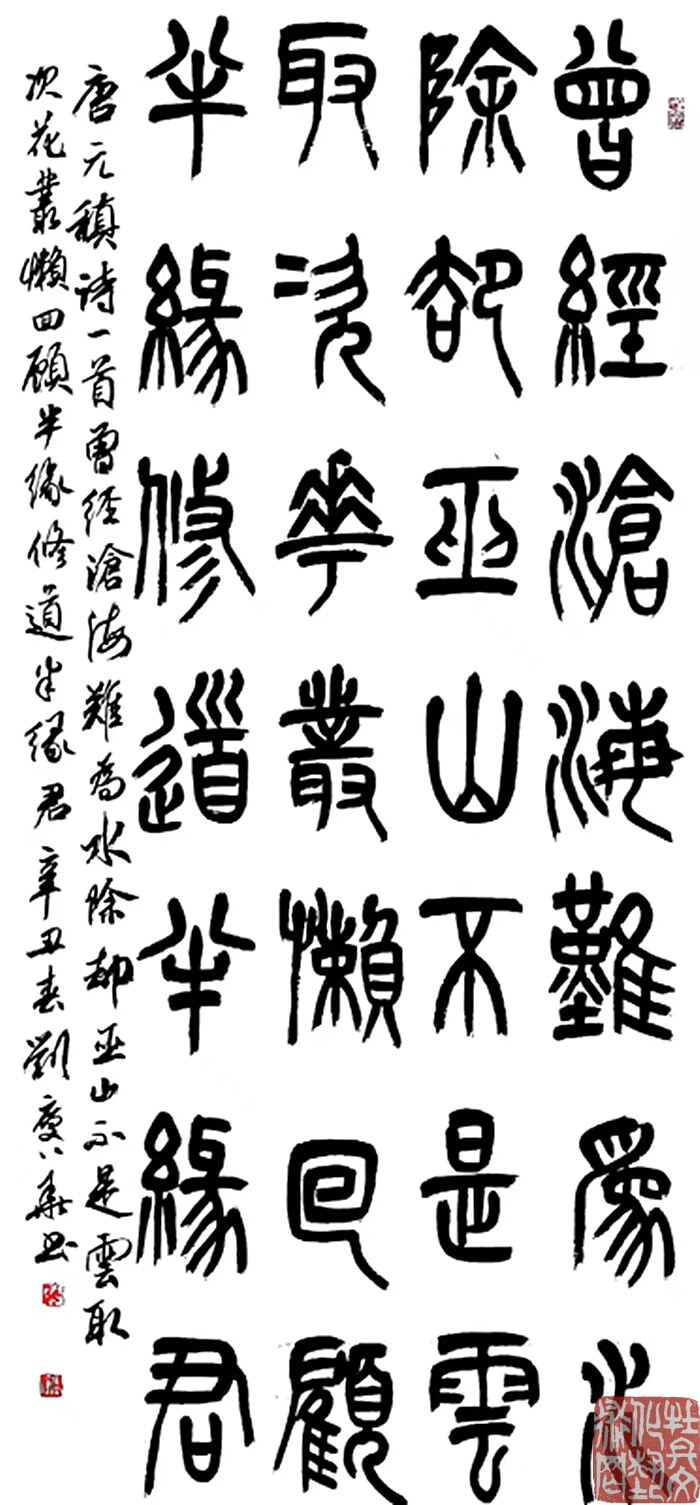 曾經滄海難爲水
除卻巫山不是雲
取次華叢懶回顧
半緣修道半緣君
唐元稹诗一首曾經滄海難為水除却巫山不是雲取
次花叢懶回顾半缘修道半缘君辛丑春劉庆華书